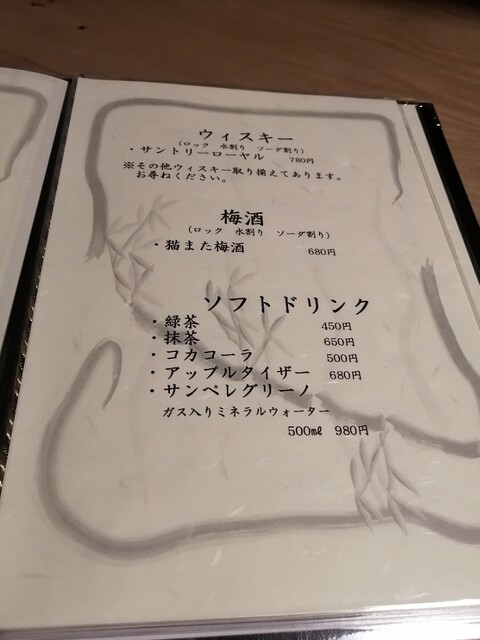 ウィスキー
（ロック　水割り　ソーダ割り）
・サントリーローヤル　780円
※その他ウィスキー取り揃えてあります。
お尋ねください。
梅酒
（ロック　水割り　ソーダ割り）
・猫また梅酒　680円
ソフトドリンク
・緑茶　450円
・抹茶　650円
・コカコーラ　500円
・アップルタイザー　680円
・サンペレグリーノ
ガス入りミネラルウォーター
500㎖　980円